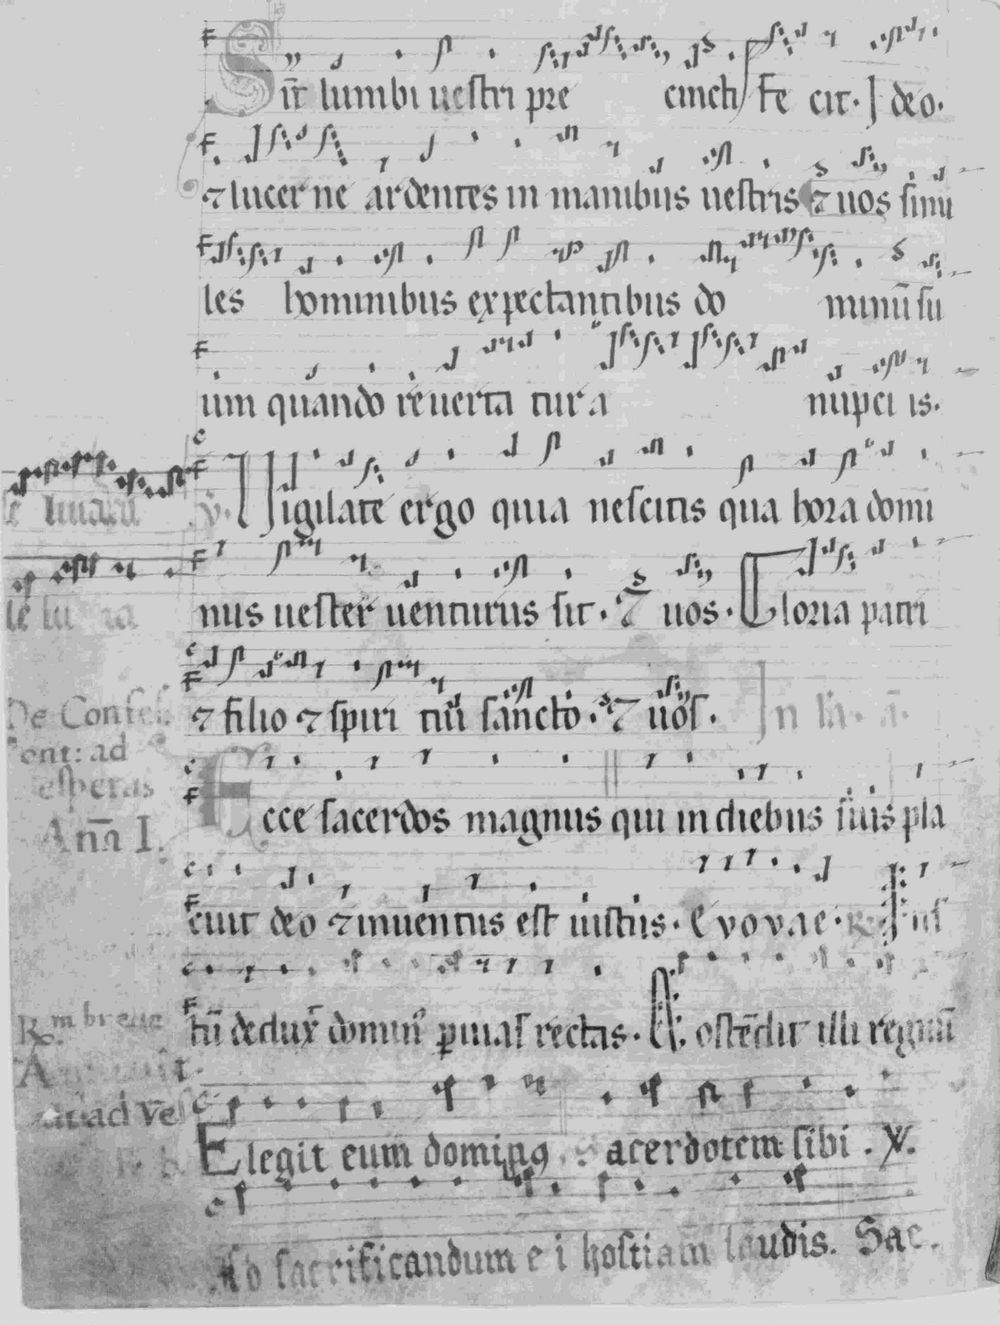 Sīt lumbi uestri pre cincti fe cit. I deo.
⁊ lucer ne ardentes in manibus uestris ⁊ uos simi
les hominibus expectantibus do minū su
um quando reuerta tur a nupci is.
℣. Uigilate ergo quia nescitis qua hora domi
nus uester uenturus sit. ⁊ uos. Gloria patri
⁊ filio ⁊ spiri tui sancto. ⁊ uos. In la. a.
De Confess.
Pont: ad
Vesperas
Anna I.
Ecce sacerdos magnus qui in diebus suis pla
cuit deo ⁊ inuentus est iustus. Evovae. ℟. Jus
tū deduxͬ domin᾽ p uias rectas. ℣. ostēdit illi regnū
℟. m breue
ad Ves
Elegit eum dominꝰ. Sacerdotem sibi. ℣.
Ad sacrificandum e i hostiam laudis. Sac.